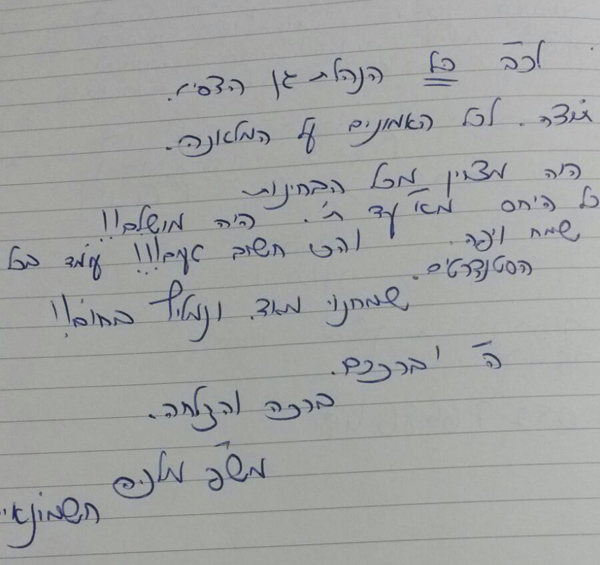 לכב' כל הנהלת גן הצפון.
תודה. לכל האמונים על המלאכה.
היה מצוין מכל הבחינות
כל היחס מא' עד ת'. היה מושלם!!
שמח ויפה. והכי חשוב טעים!!! עומד בכל
הסטנדרטים.
שמחנו מאוד ונמליץ בחום!!
ה' יברככם.
ברכה והצלחה.
משפ'
חשמונאי